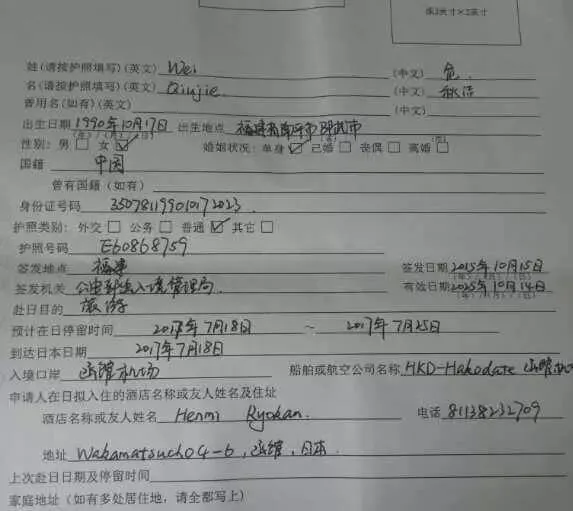 或2英寸×2英寸
姓(请按护照填写)(英文) Wei (中文) 危
名(请按护照填写)(英文) Qiujie (中文) 秋洁
曾用名(如有)(英文) (中文)
出生日期 1990年10月17日 出生地点 福建省南平市邵武市
(年)/(月)/(日) (省)
性别：男□ 女☑ 婚姻状况：单身☑ 已婚□ 丧偶□ 离婚□
国籍 中国
曾有国籍（如有）
身份证号码 350781199010172023
护照类别：外交□ 公务□ 普通☑ 其它□
护照号码 E60868759
签发地点 福建 签发日期 2015年10月15日
(年)/(月)/(日)
签发机关 公安部出入境管理局 有效日期 2025年10月14日
(年)/(月)/(日)
赴日目的 旅游
预计在日停留时间 2017年7月18日 ~ 2017年7月25日
到达日本日期 2017年7月18日
入境口岸 函馆机场 船舶或航空公司名称 HKD-Hakodate 函馆机
申请人在日拟入住的酒店名称或友人姓名及住址
酒店名称或友人姓名 Henmi Ryokan. 电话 81138232709
地址 Wakamatsucho 4-6, 函馆, 日本.
上次赴日日期及停留时间
家庭地址（如有多处居住地，请全都写上）